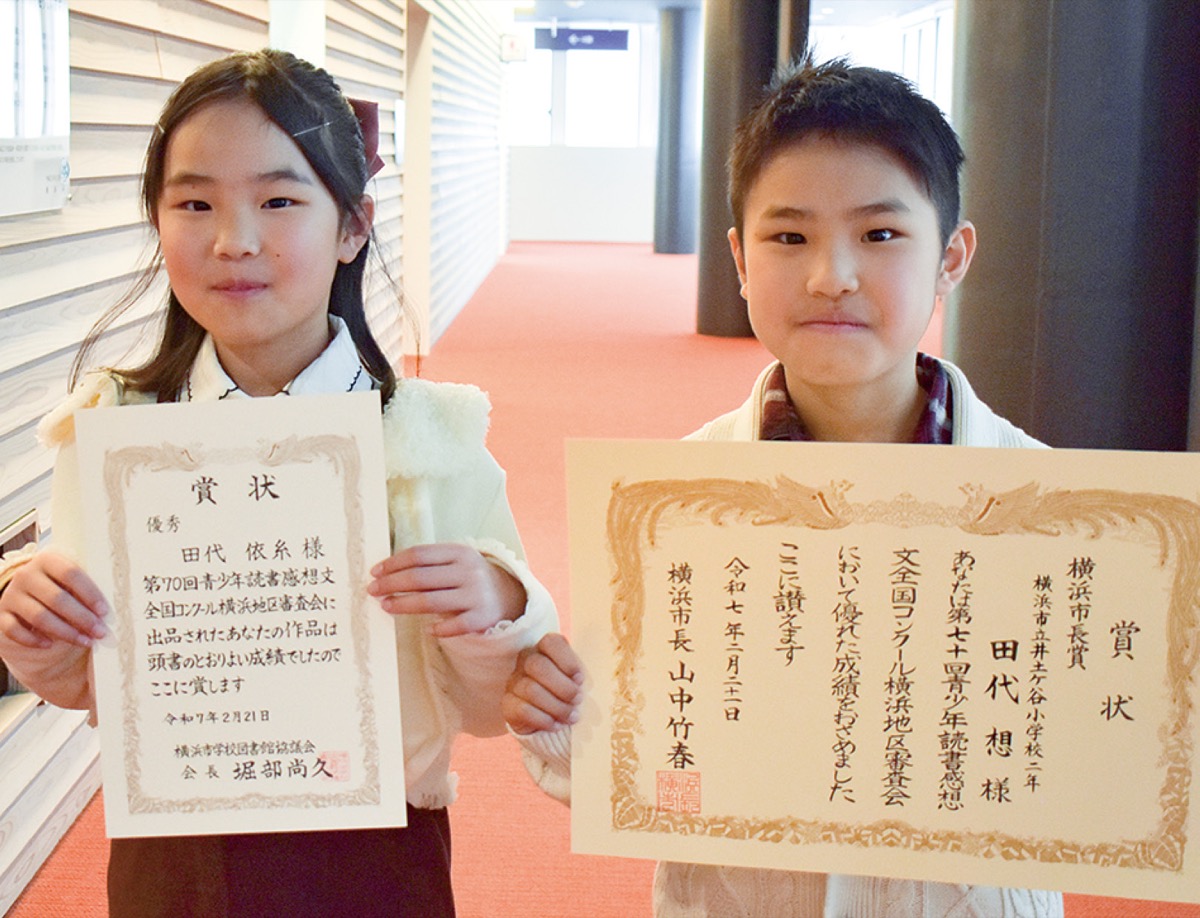 賞状
優秀
田代 依糸 様
第70回青少年読書感想文
全国コンクール横浜地区審査会に
出品されたあなたの作品は
頭書のとおりよい成績でしたので
ここに賞します
令和7年2月21日
横浜市学校図書館協議会
会長 堀部尚久
賞状
横浜市長賞
横浜市立井土ヶ谷小学校二年
田代 想 様
あなたは第七十回青少年読書感想
文全国コンクール横浜地区審査会
において優れた成績をおさめました
ここに讃えます
令和七年二月二十一日
横浜市長 山中竹春